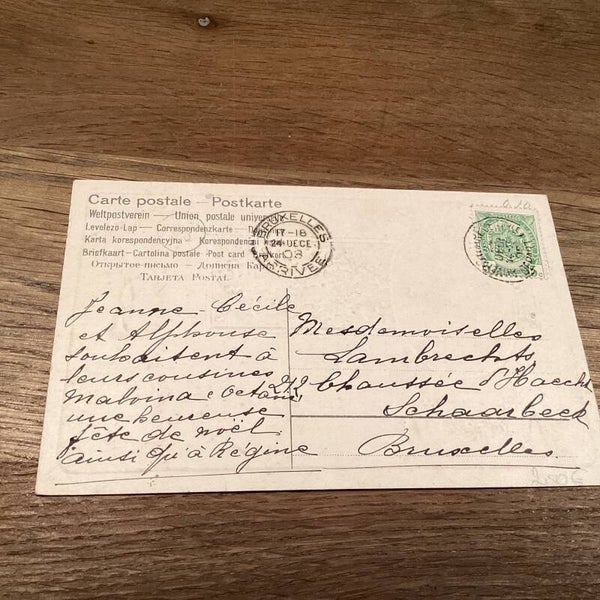 Carte postale — Postkarte
Weltpostverein — Union postale univer
Levelezo-Lap — Correspondenzkarte — D
Karta korespondencyjna — Korespondenční
Briefkaart — Cartolina postale — Post card
Открытое письмо — Дописна Кар
TARJETA POSTAL
BRUXELLES
17-18
24 DECE
03
ARRIVEE
Jeanne-Cécile
et Alphonse
souhaitent à
leurs cousines
Malvina & Octavie
une heureuse
fête de noël
ainsi qu'à Régine
Mesdemoiselles
Lambrechts
212 Chaussée d'Haecht
Schaarbeck
Bruxelles